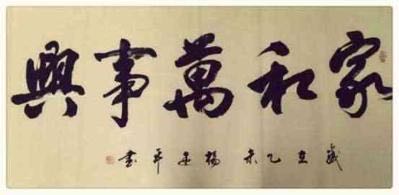 家和萬事興
歲在乙未 楊子平書